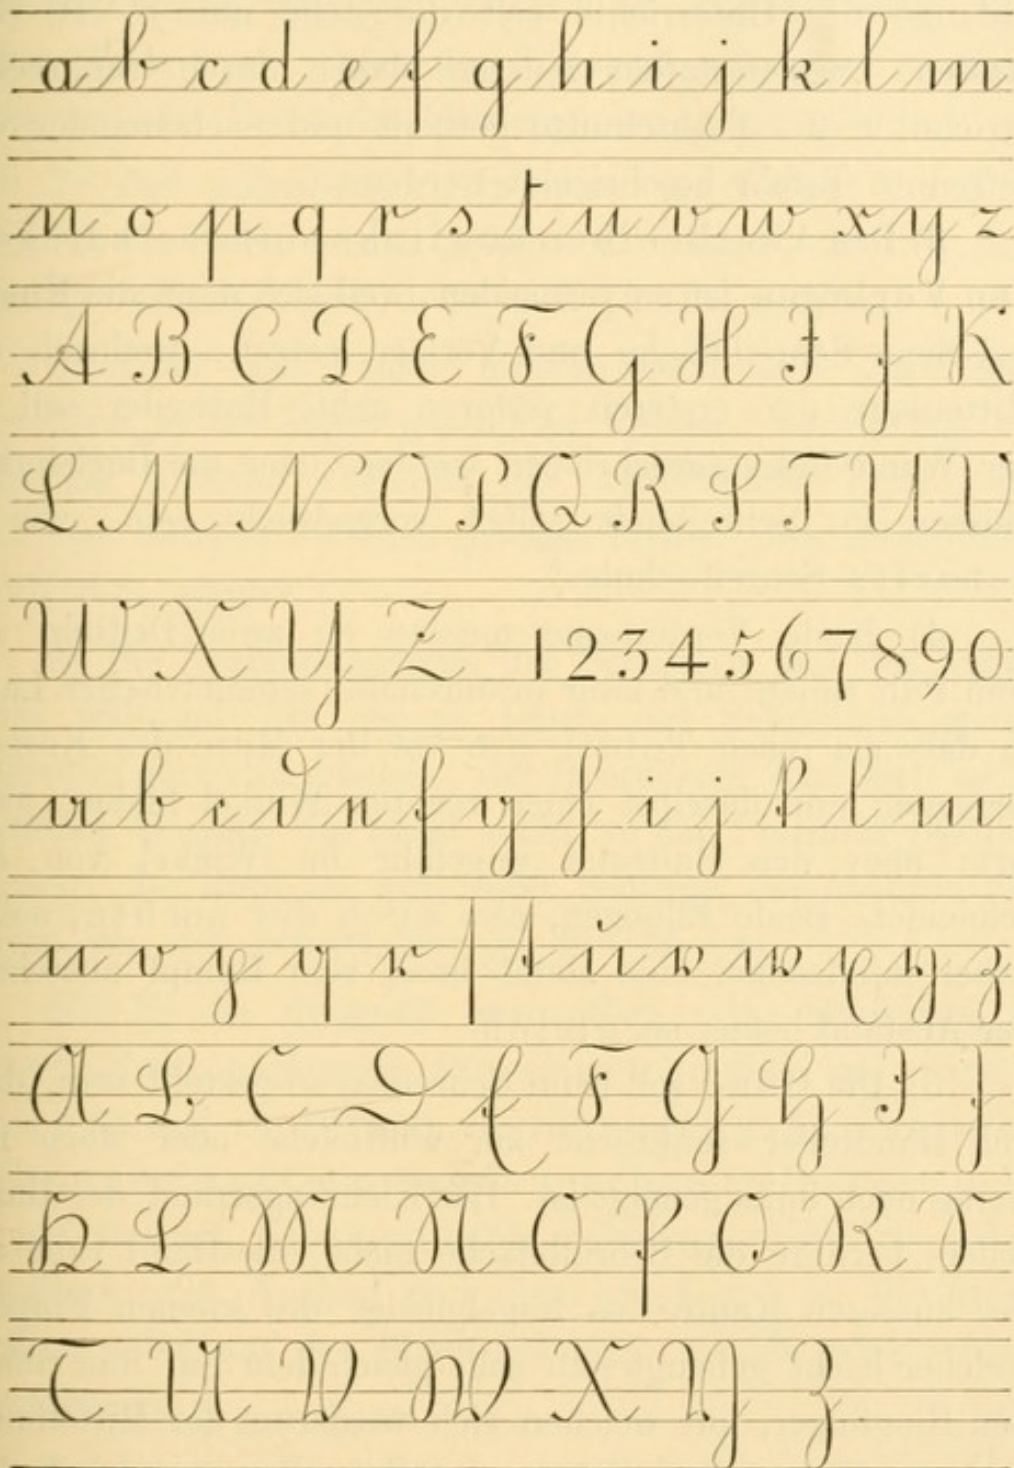 a b c d e f g h i j k l m
n o p q r s t u v w x y z
A B C D E F G H I J K
L M N O P Q R S T U V
W X Y Z 1 2 3 4 5 6 7 8 9 0
a b c d e f g h i j k l m
n o p q r ſ t u v w x y z
A B C D E F G H I J
K L M N O P Q R S
T U V W X Y Z